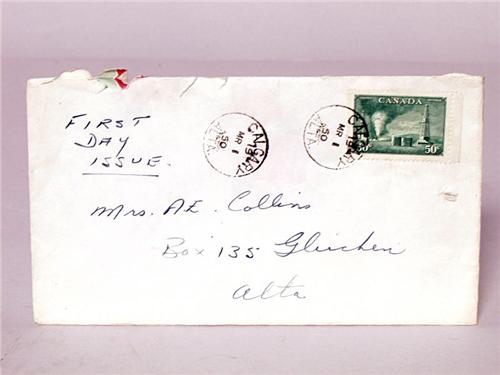 FIRST
DAY
ISSUE.
CALGARY
19
MR 1
50
ALTA
CALGARY
19
MR 1
50
ALTA
CANADA
50 50¢
Mrs. A.E. Collins
Box 135 Gleichen
Alta